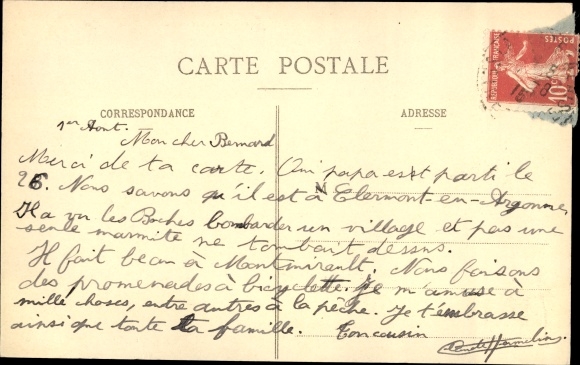 CARTE POSTALE
CORRESPONDANCE
ADRESSE
REPUBLIQUE FRANÇAISE
POSTES
10c
1er Aout.
Mon cher Bernard
Merci de ta carte. Oui papa est parti le
26. Nous savons qu'il est à Clermont-en-Argonne,
Il a vu les Boches bombarder un village et pas une
seule marmite ne tombait dessus.
Il fait beau à Montmirault. Nous faisons
des promenades à bicyclette. Je m'amuse à
mille choses, entre autres à la pêche. Je t'embrasse
ainsi que toute la famille. Ton cousin